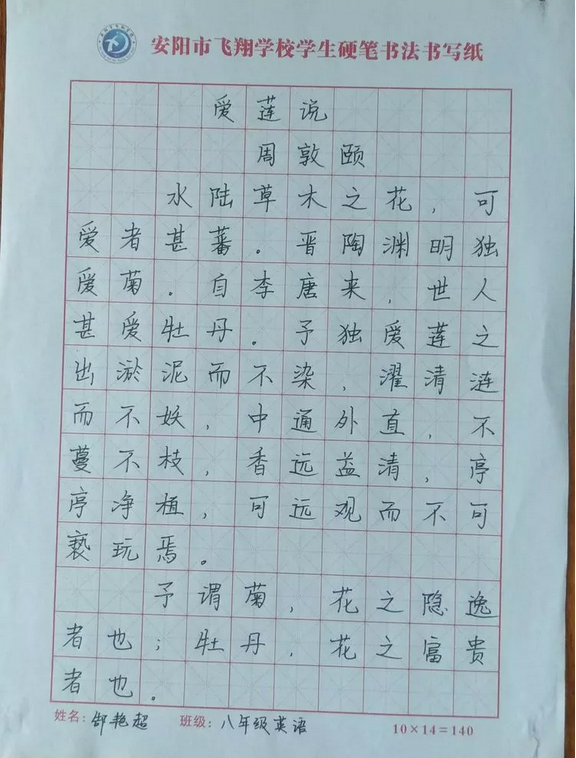 安阳市飞翔学校学生硬笔书法书写纸
爱莲说
周敦颐
水陆草木之花，可
爱者甚蕃。晋陶渊明独
爱菊。自李唐来，世人
甚爱牡丹。予独爱莲之
出淤泥而不染，濯清涟
而不妖，中通外直，不
蔓不枝，香远益清，亭
亭净植，可远观而不可
亵玩焉。
予谓菊，花之隐逸
者也；牡丹，花之富贵
者也。
姓名：郜艳超 班级：八年级英语 10×14=140